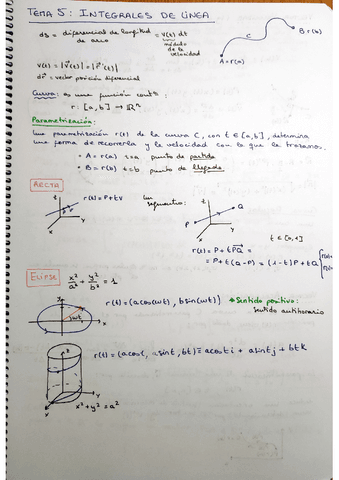 TEMA 5: INTEGRALES DE LÍNEA
ds = diferencial de longitud de arco = v(t) dt
módulo de la velocidad
C
A = r(a)
B = r(b)
v(t) = |v⃗(t)| = |r⃗'(t)|
dr⃗ = vector posición diferencial
Curva: es una función contº:
r: [a,b] → ℝⁿ
Parametrización:
Una parametrización r(t) de la curva C, con t ∈ [a,b], determina
una forma de recorrerla y la velocidad con la que la trazamos.
- A = r(a) t=a punto de partida
- B = r(b) t=b punto de llegada
RECTA
r(t) = P + tV
Un segmento:
P
Q
t ∈ [0,1]
r(t) = P + tPQ⃗ =
= P + t(Q-P) = (1-t)P + tQ
ELIPSE
x²/a² + y²/b² = 1
r(t) = (a cos(wt), b sin(wt))
* Sentido positivo:
sentido antihorario
r(t) = (a cos t, a sin t, bt) = a cos t i + a sin t j + bt k
x² + y² = a²